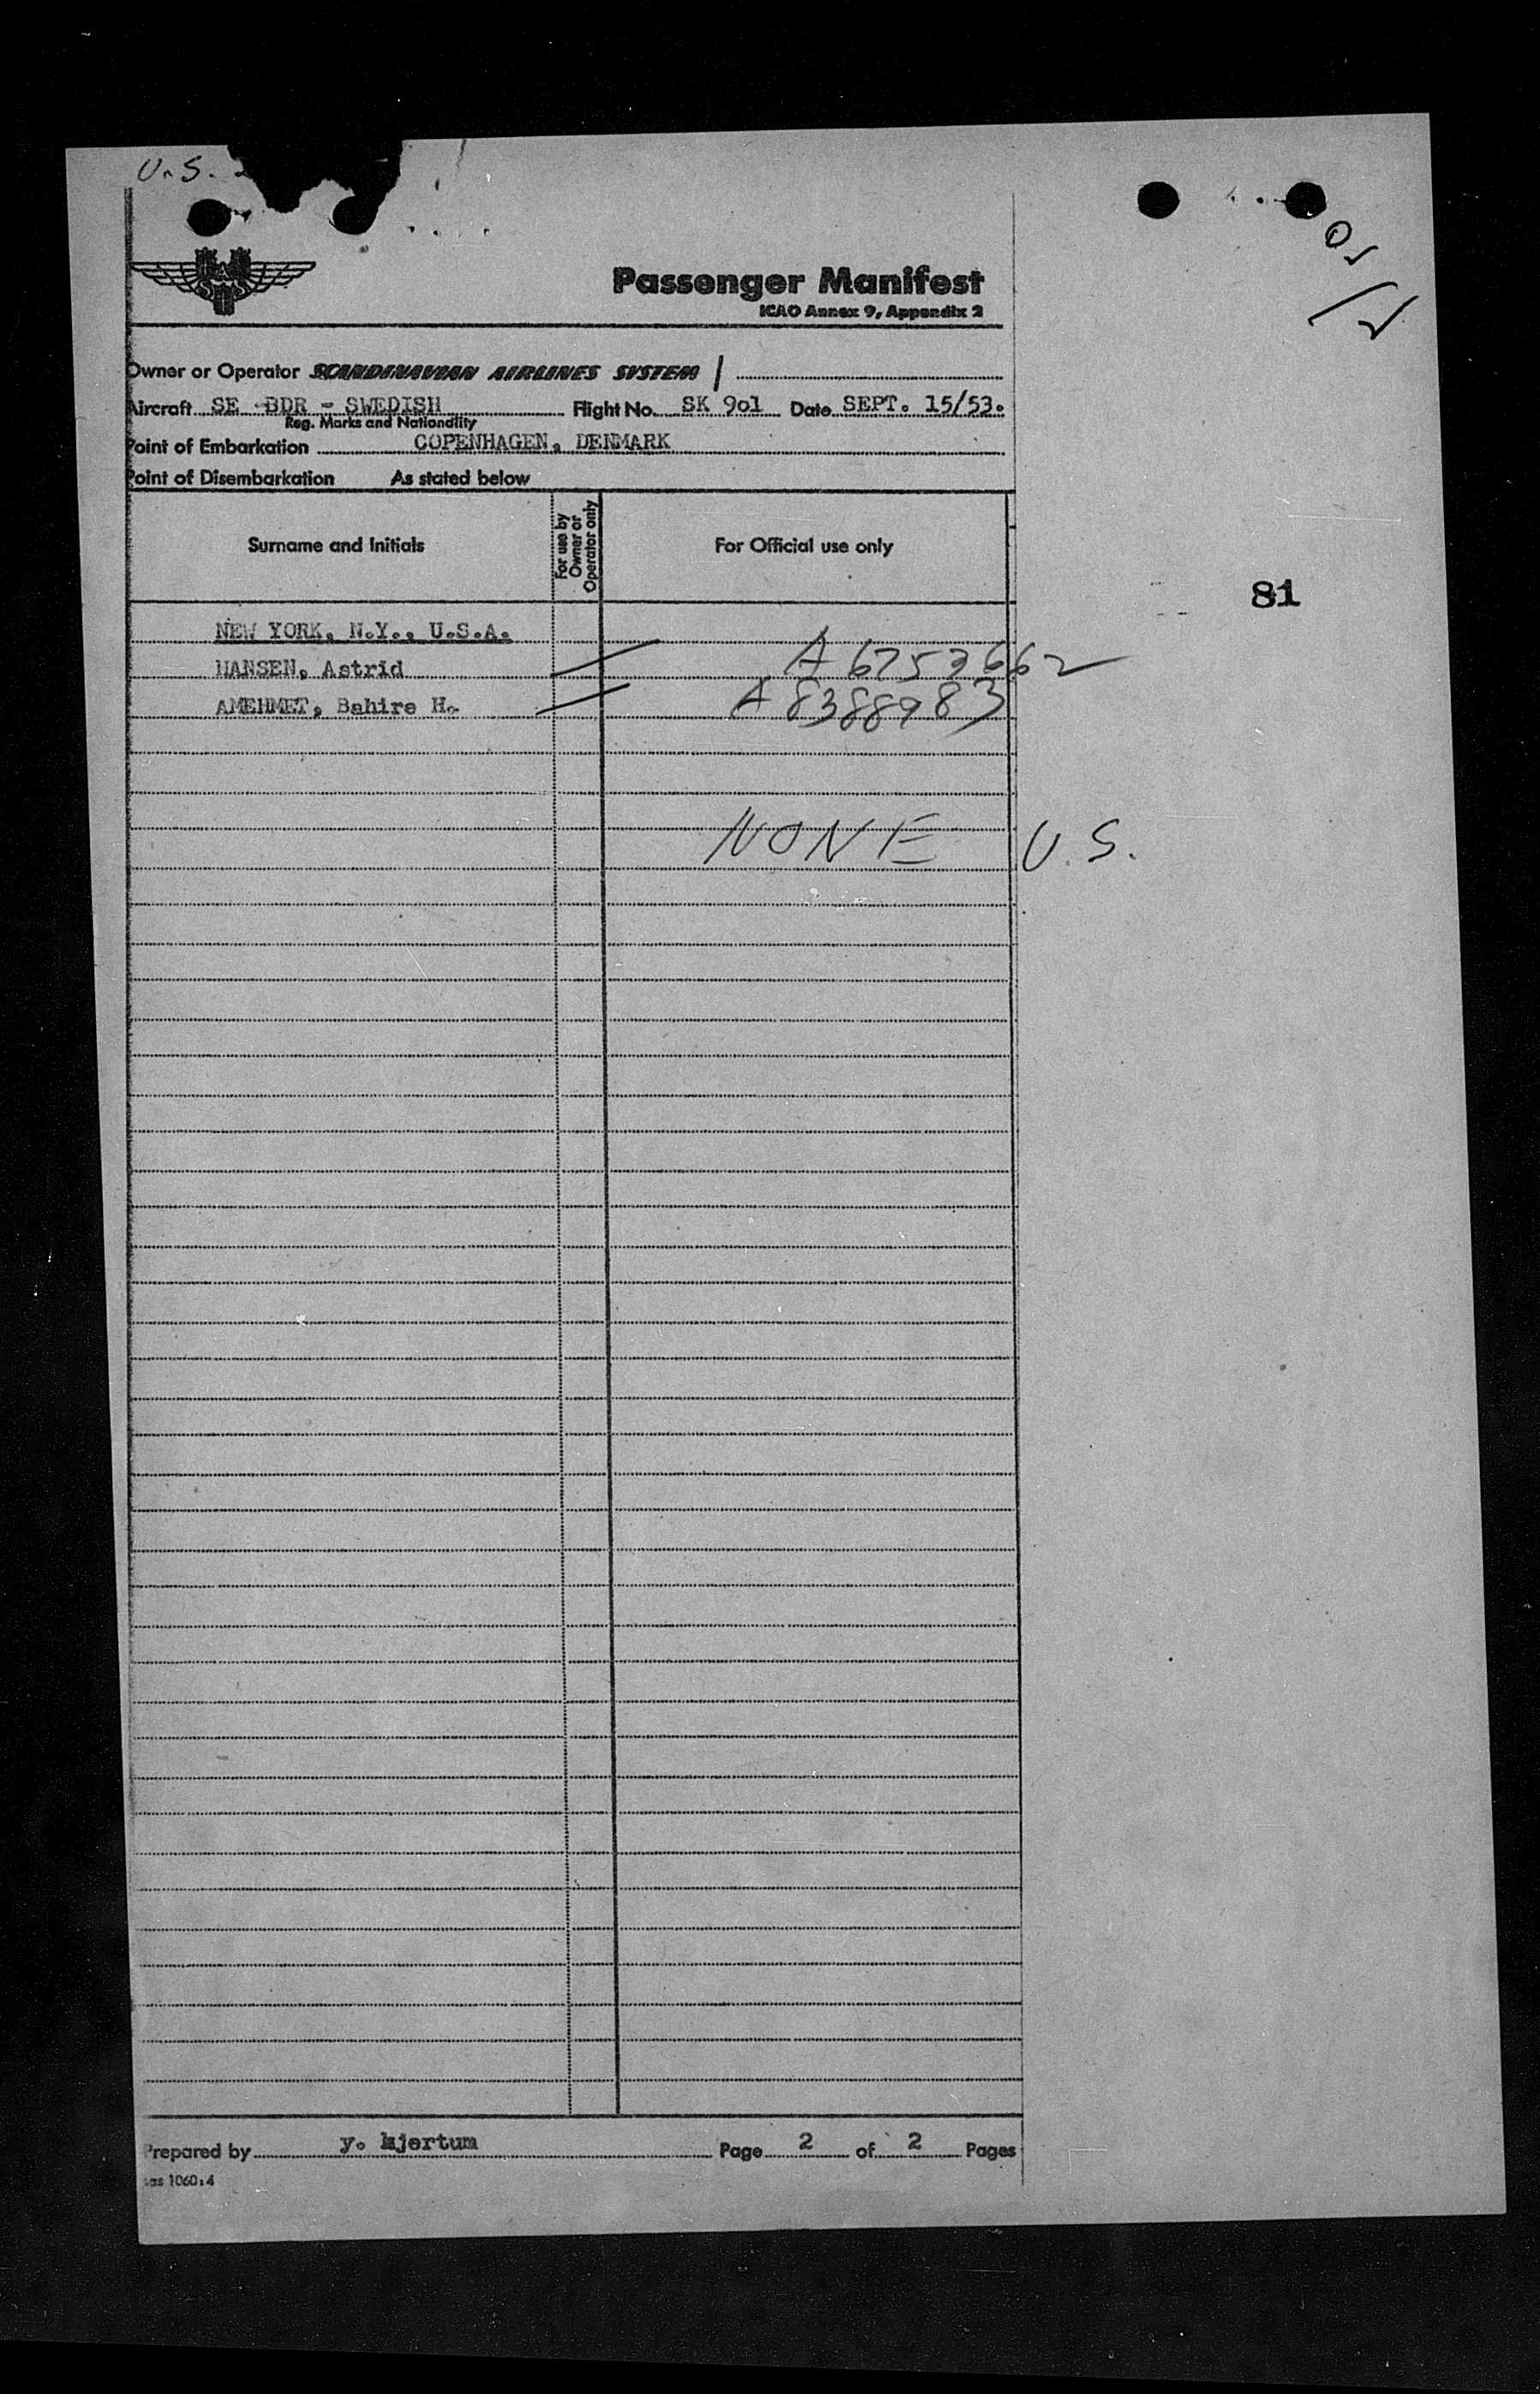 U.S.
SAS
Passenger Manifest
ICAO Annex 9, Appendix 2
Owner or Operator SCANDINAVIAN AIRLINES SYSTEM
Aircraft SE -BDR - SWEDISH Flight No. SK 9o1 Date SEPT. 15/53.
Reg. Marks and Nationality
Point of Embarkation COPENHAGEN, DENMARK
Point of Disembarkation As stated below
Surname and Initials For use by Owner or Operator only For Official use only
81
NEW YORK, N.Y., U.S.A.
HANSEN, Astrid A 6753662
AMEHMET, Bahire H. A 8388983
NONE U.S.
Prepared by y. kjertum Page 2 of 2 Pages
sas 1060:4